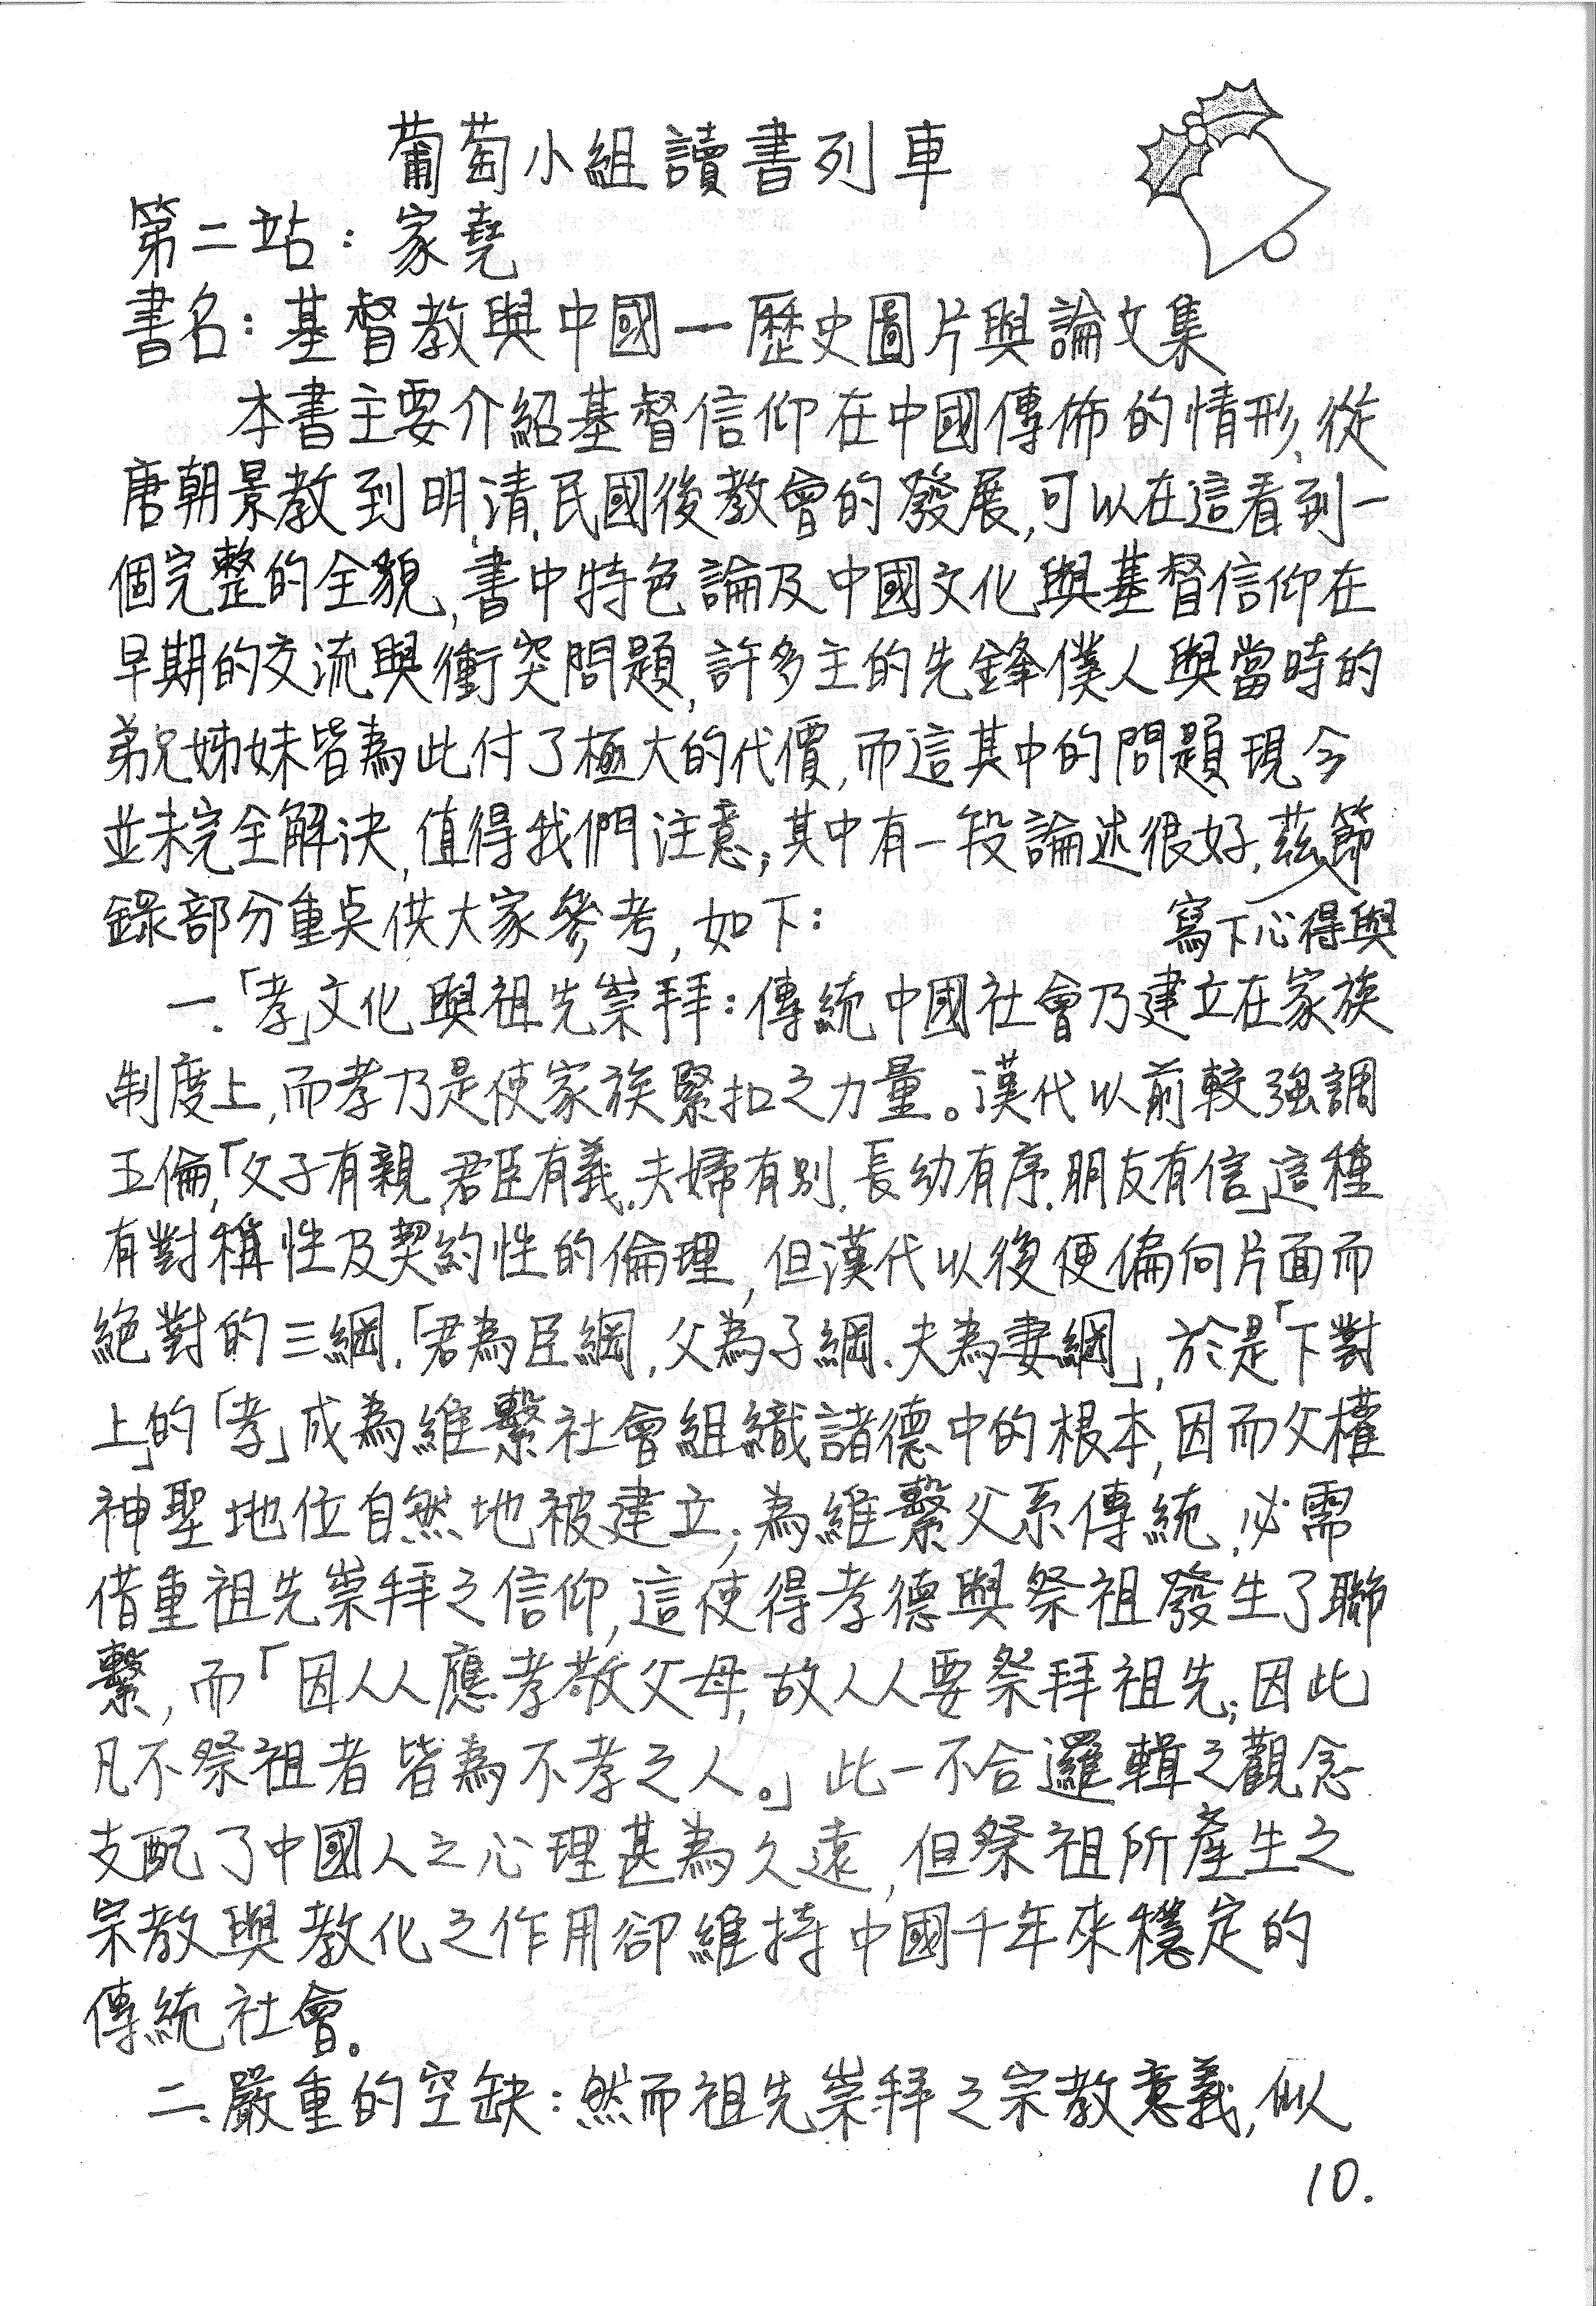 葡萄小組讀書列車
第二站：家堯
書名：基督教與中國一歷史圖片與論文集
本書主要介紹基督信仰在中國傳佈的情形、從
唐朝景教到明、清、民國後教會的發展，可以在這看到一
個完整的全貌，書中特色論及中國文化與基督信仰在
早期的交流與衝突問題，許多主的先鋒僕人與當時的
弟兄姊妹皆為此付了極大的代價，而這其中的問題現今
並未完全解決，值得我們注意；其中有一段論述很好，茲節
錄部分重點供大家參考，如下：
寫下心得與
一、「孝」文化與祖先崇拜：傳統中國社會乃建立在家族
制度上，而孝乃是使家族緊扣之力量。漢代以前較強調
五倫，「父子有親、君臣有義、夫婦有別、長幼有序、朋友有信」這種
有對稱性及契約性的倫理，但漢代以後便偏向片面而
絕對的三綱.「君為臣綱，父為子綱、夫為妻綱」，於是「下對
上」的「孝」成為維繫社會組織諸德中的根本，因而父權
神聖地位自然地被建立；為維繫父系傳統，必需
借重祖先崇拜之信仰，這使得孝德與祭祖發生了聯
繫，而「因人人應孝敬父母，故人人要祭拜祖先；因此
凡不祭祖者皆為不孝之人。」此一不合邏輯之觀念
支配了中國人之心理甚為久遠，但祭祖所產生之
宗教與教化之作用卻維持中國千年來穩定的
傳統社會。
二、嚴重的空缺：然而祖先崇拜之宗教意義，似
10.